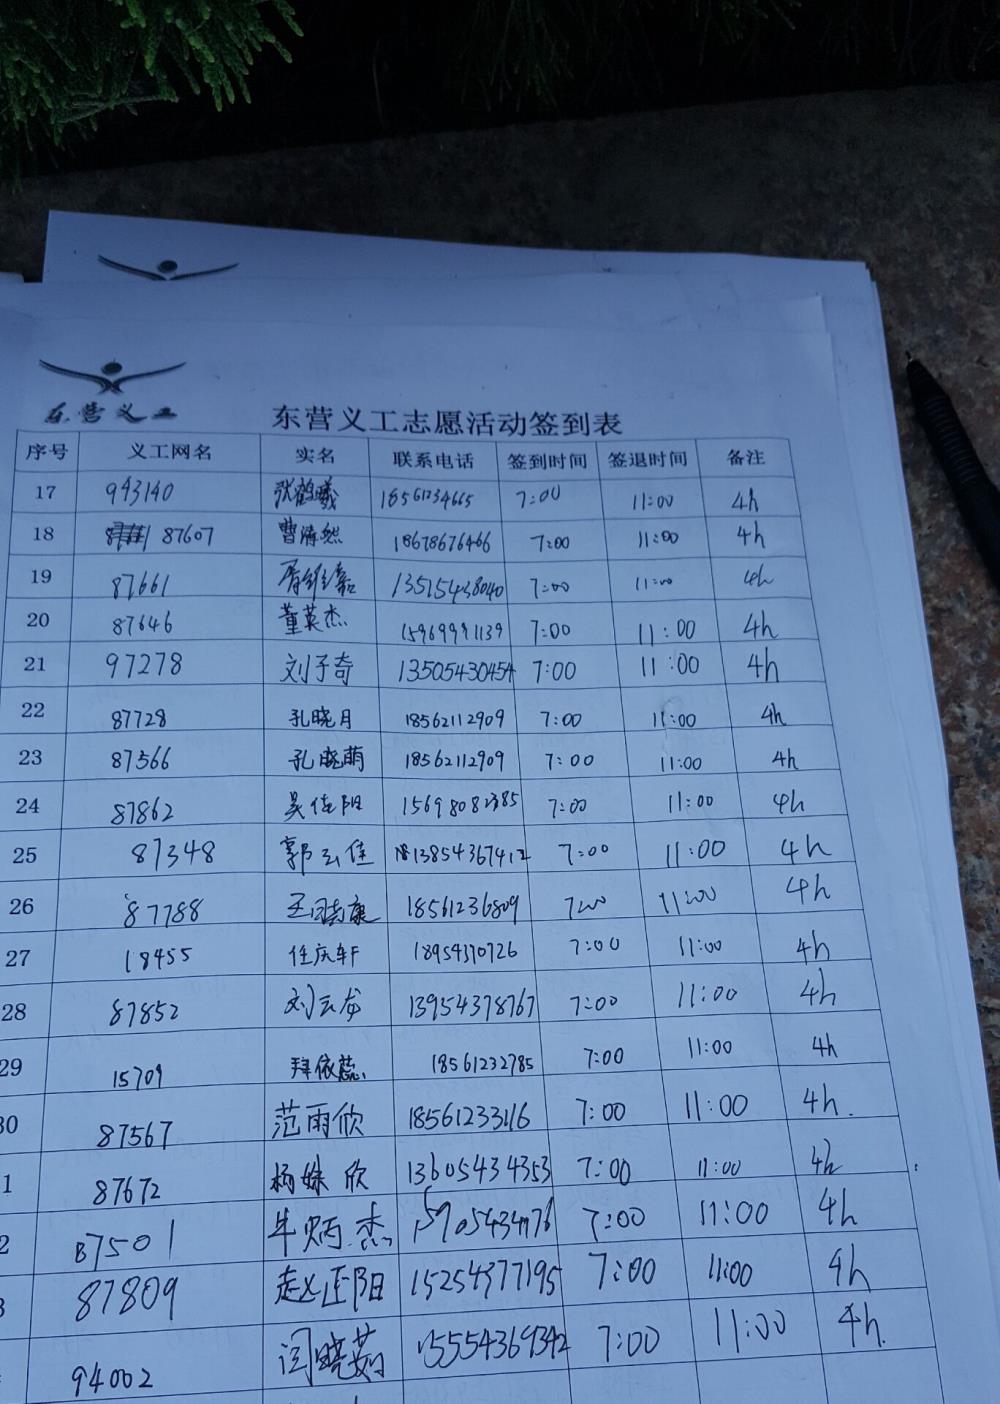 东营义工
东营义工志愿活动签到表
序号 义工网名 实名 联系电话 签到时间 签退时间 备注
17 943140 张鹤曦 18561234665 7:00 11:00 4h
18 87607 曹浩然 18678676466 7:00 11:00 4h
19 87661 13515438040 7:00 11:00 4h
20 87646 董英杰 15969991139 7:00 11:00 4h
21 97278 刘子奇 13505430454 7:00 11:00 4h
22 87728 孔晓月 18562112909 7:00 11:00 4h
23 87566 孔晓萌 18562112909 7:00 11:00 4h
24 87862 吴佳阳 15698082385 7:00 11:00 4h
25 87348 郭云佳 13854367412 7:00 11:00 4h
26 87788 18561236809 7:00 11:00 4h
27 18455 任庆轩 18954370726 7:00 11:00 4h
28 87852 刘云龙 13954378767 7:00 11:00 4h
29 15709 拜依蕊 18561232785 7:00 11:00 4h
30 87567 范雨欣 18561233116 7:00 11:00 4h.
1 87672 杨姝欣 13605434353 7:00 11:00 4h
2 87501 牛炳杰 7:00 11:00 4h
87809 赵正阳 15254377195 7:00 11:00 4h
94002 闫晓 15554369342 7:00 11:00 4h.